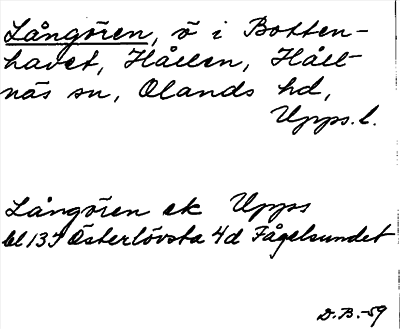 Långören, ö i Botten-
havet, Hållen, Håll-
näs sn, Olands hd,
Upps. l.
Långören ek Upps
bl 134 Österlövsta 4d Fågelsundet
D.B.-59